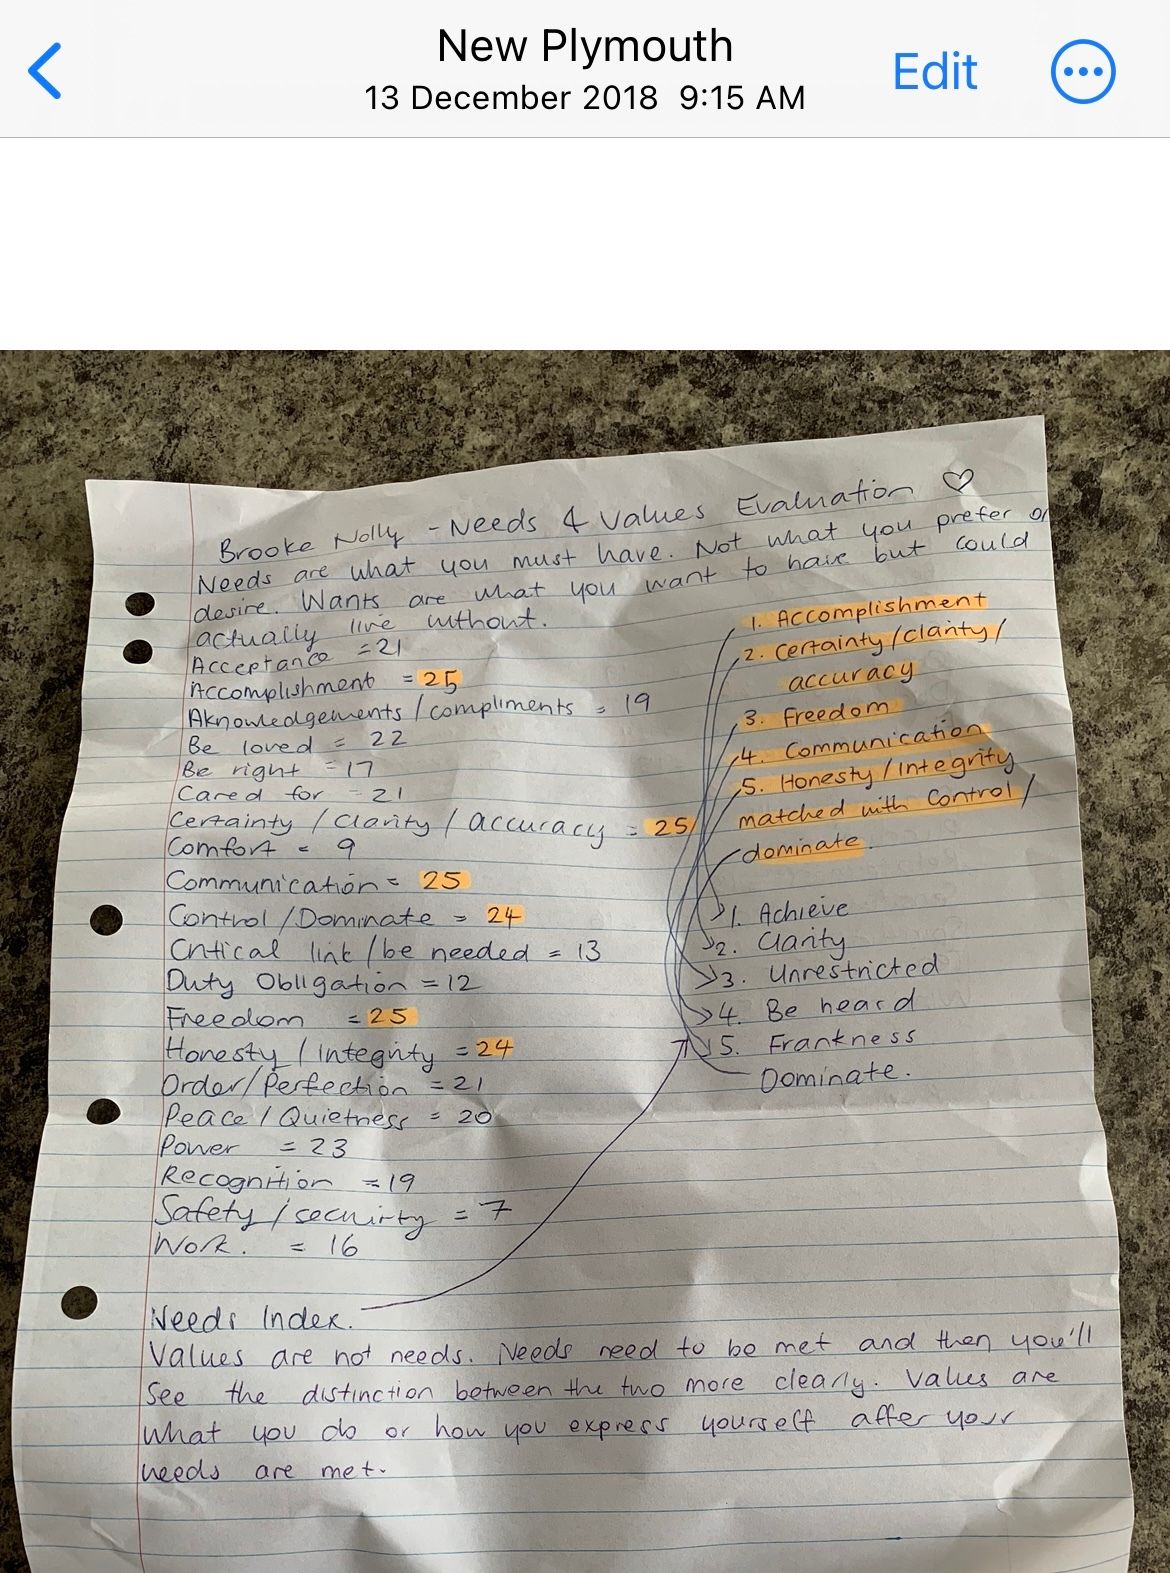 New Plymouth
13 December 2018 9:15 AM
Edit
Brooke Nolly - Needs & Values Evaluation ♡
Needs are what you must have. Not what you prefer or
desire. Wants are what you want to have but could
actually live without.
Acceptance = 21
Accomplishment = 25
Aknowledgements / compliments = 19
Be loved = 22
Be right = 17
Cared for = 21
Certainty / Clarity / accuracy = 25
Comfort = 9
Communication = 25
Control / Dominate = 24
Critical link / be needed = 13
Duty Obligation = 12
Freedom = 25
Honesty / Integrity = 24
Order/Perfection = 21
Peace / Quietness = 20
Power = 23
Recognition = 19
Safety / secuirty = 7
Work. = 16
1. Accomplishment
2. Certainty / clarity /
accuracy
3. Freedom
4. Communication
5. Honesty / Integrity
matched with Control /
dominate.
1. Achieve
2. Clarity
3. Unrestricted
4. Be heard
5. Frankness
Dominate.
Needs Index.
Values are not needs. Needs need to be met and then you'll
see the distinction between the two more clearly. Values are
what you do or how you express yourself after your
needs are met.